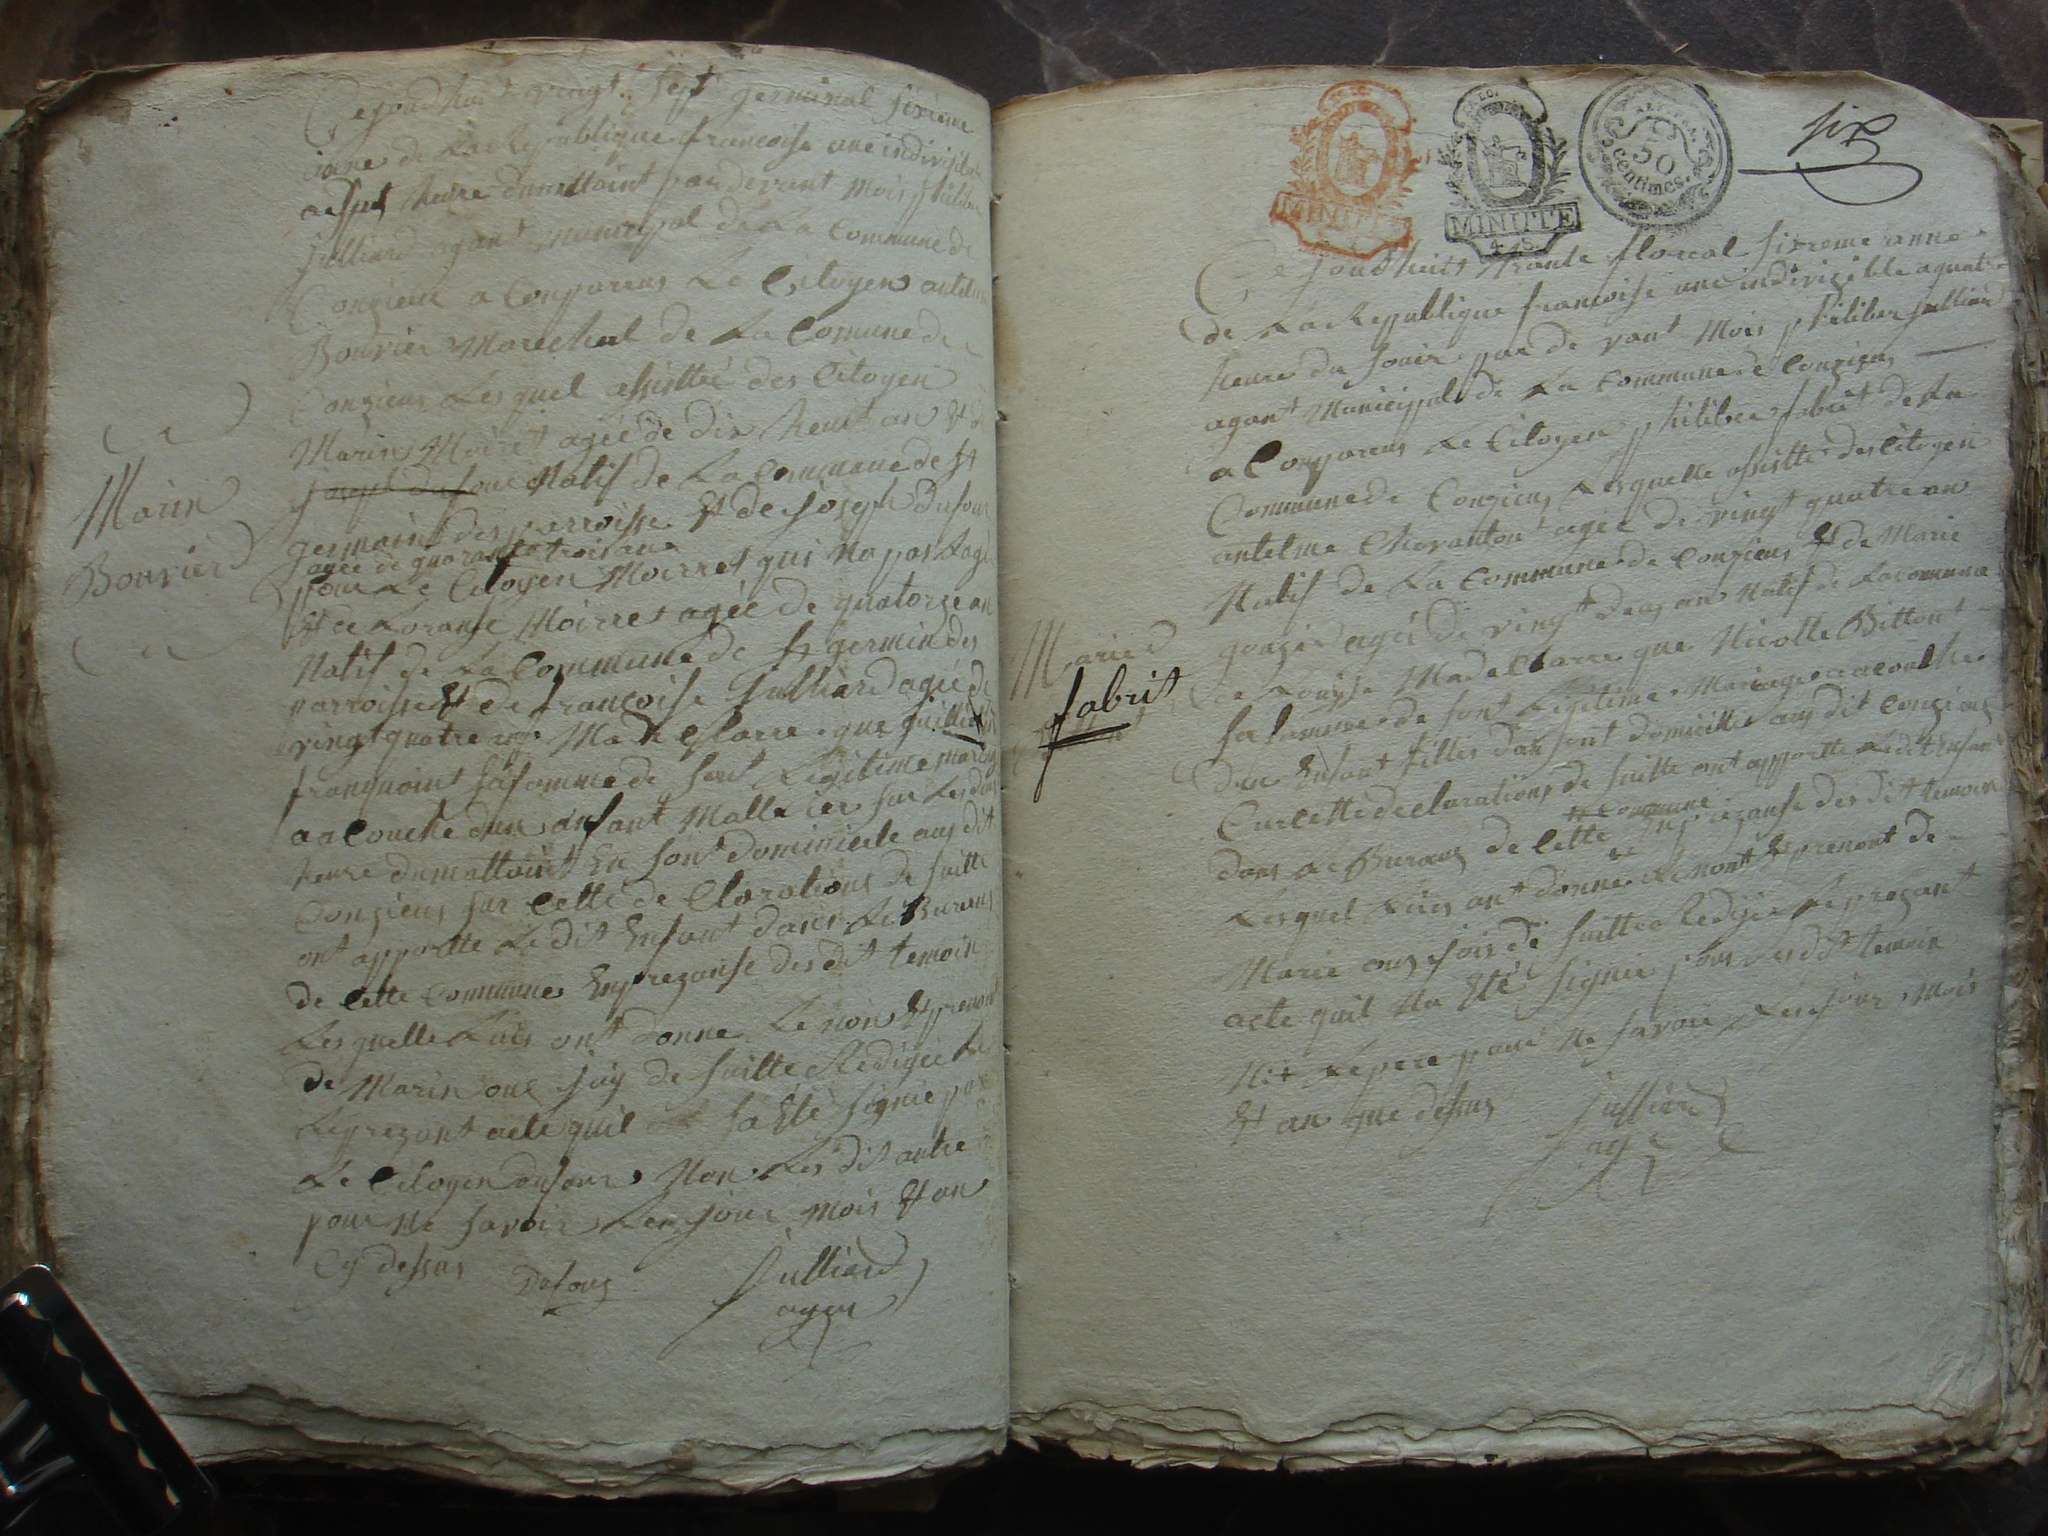 Cejourdhuit vingt sept germinal sixieme
anne de La Republique francoise une indivisible
a sept heure du mattoint par devant Mois philiber
Julliard agant municipal de La Commune de
Conzieu a Comparens Le Citoyen antelme
Bouvier Marechal de La Comune de
Conzieus Lesquel assistté des Citoyen
Marin Moiret agée de dix heuit an Et
joseph dufour Natif de La Commune de St
germain des parroisse Et de Joseph Dufour
agée de quarante trois ans
pour Le Citoyen Moirret qui na pas Lage
Et de Loranse Moirret agée de quatorze an
Natif de La Commune de St germin des
parroisse Et de francoise Julliard agée de
vingt quatre an Ma declarre que
franquoint sa famme de sont Legitime mariage
a acouche dun anfant Malle ier sur Les dous
heure du mattoint En sont dominicile aus dit
Conzieus sur Cette de Clarations de suitte
ont apportte Le dit Enfant dans Le Bureaus
de Cette Commune En prezanse des dit temoin
Lesquelle Luis ont donne Le nom Et prenom
de Marin ous jay de suitte Redigée Le
Le prezant acte quil a Eté signée par
Le Citoyen dufour Non Les dit autre
pour ne savoir Les jour Mois Et an
Cy dessus
Dufour
Julliard
agen
Marin
Bouvier
MINUTE
MINUTE
50
centimes.
six
Ce jourdhuit trante floreal sixieme anne
de La Reppublique francoise une indivizible a quatre
heure du soair par de vant Mois philiber Julliard
agant Municippal de La Commune de Conzieus
a Comparens Le Citoyen philiber fabrit de La
Commune de Conzieus Lesquelle assistte des Citoyen
antelme Charanton agée de vingt quatre an
Natif de La Commune de Conzieus Et de Marie
gonzin agée de vingt deus an Natif de La comune
de Louysse Ma de Clarre que Nicolle Bittont
sa famme de sont Legitime Mariage a acouche
dun Enfant filles dan sont domicille aus dit Conzieus
Sur Cette declarations de suitte ont apportte Le dit Enfant
dans Le Bureaus de Cette Commune En prezanse des dit temoin
Lesquel Luis ont donne Le nont Et prenont de
Marie ous jais de suitte Redigée Le prezant
acte quil Na Eté signée par Les dit temoin
Ni Le pere pour Ne savoir Les jour Mois
Et an que dessus
Julliard
age
Marie
fabrit